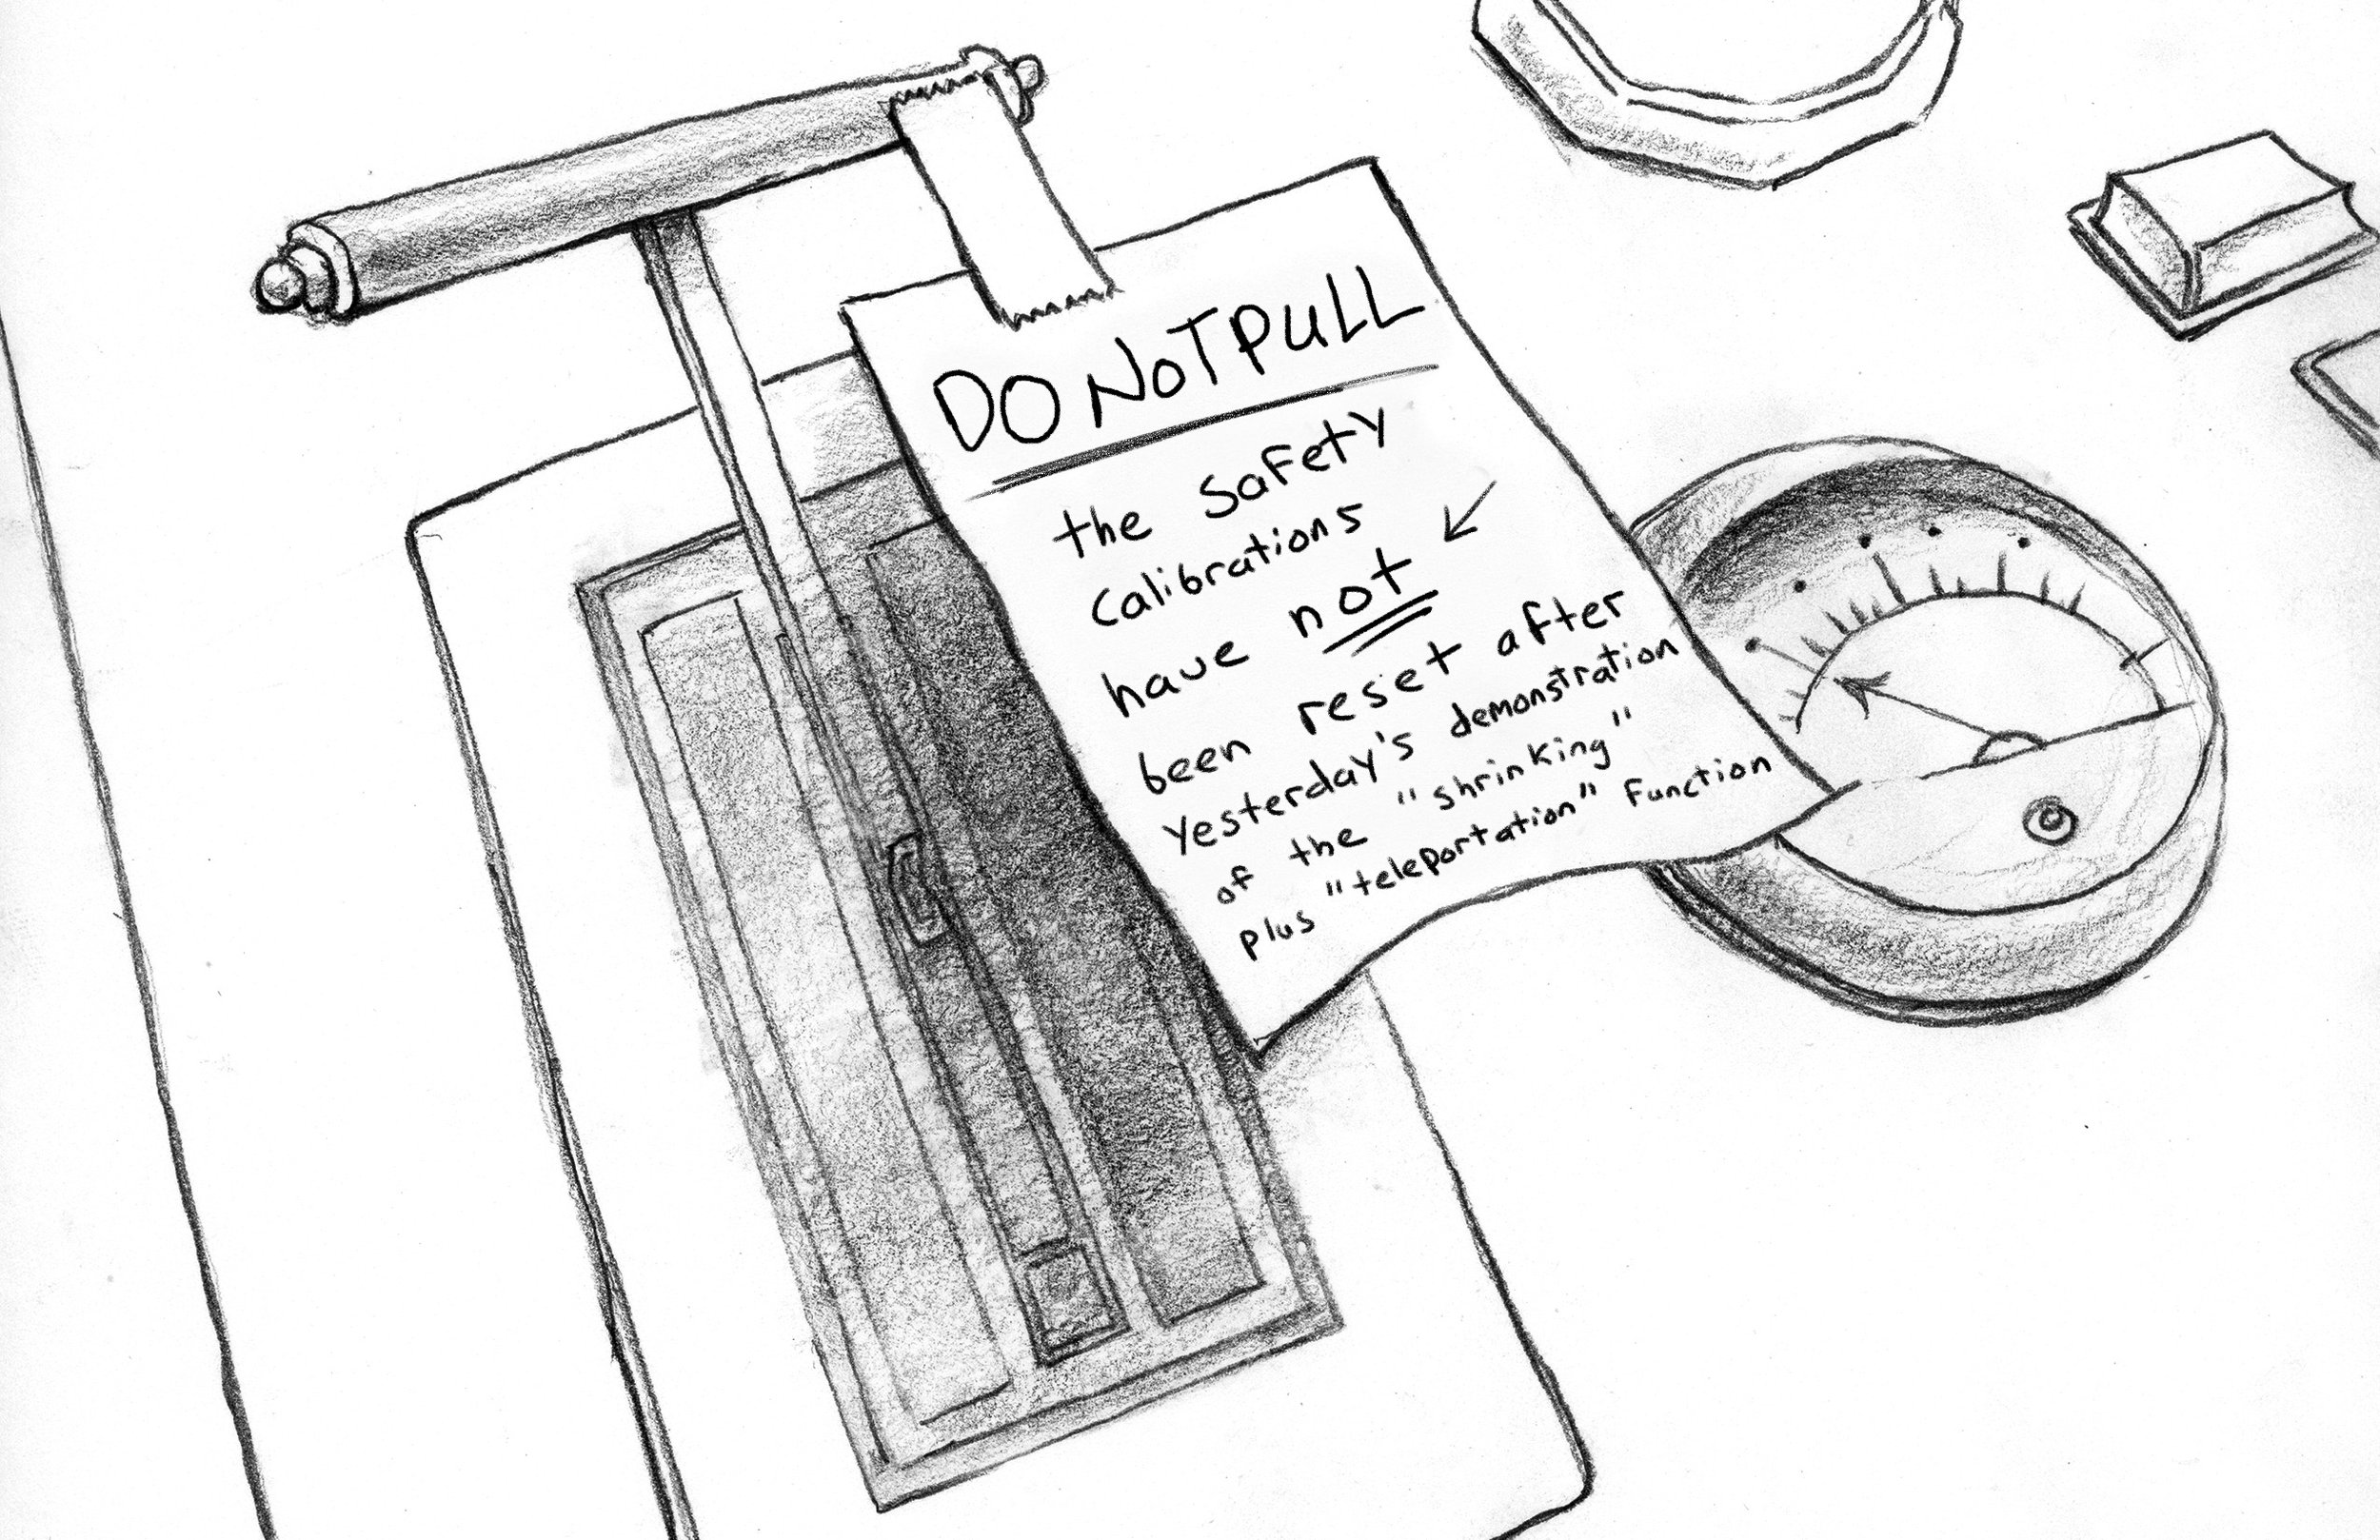 DO NOT PULL
the Safety
Calibrations
have not
been reset after
Yesterday's demonstration
of the "shrinking"
plus "teleportation" function